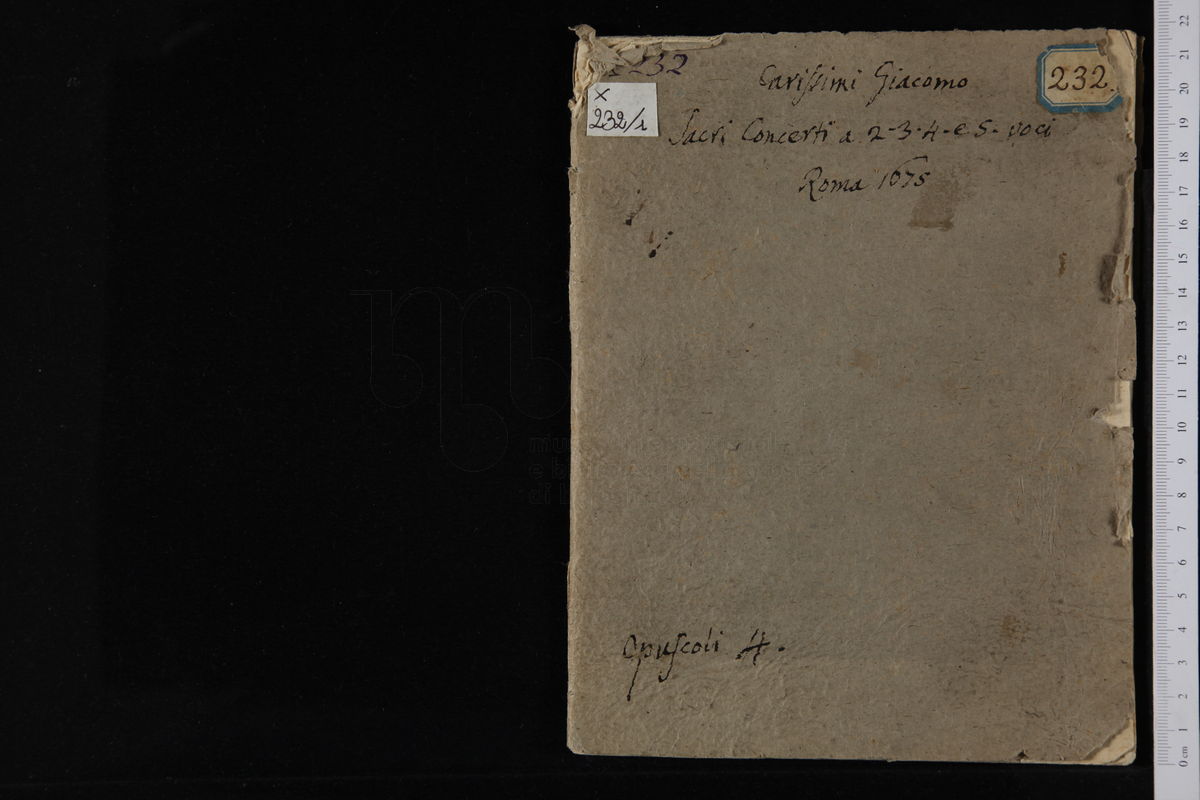 232
X
232/1
232.
Carissimi Giacomo
Sacri Concerti a 2-3-4-e 5- voci
Roma 1675
Opuscoli 4.
0 cm 1 2 3 4 5 6 7 8 9 10 11 12 13 14 15 16 17 18 19 20 21 22